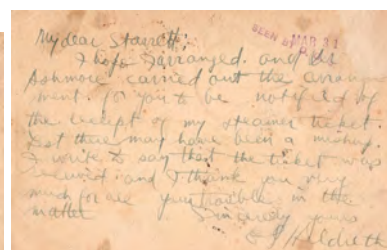 My dear Starrett:
SEEN BY MAR 31
I hope I arranged. and Dr
Ashmore carried out the arrange
ment. for you to be notified of
the receipt of my steamer ticket.
Lest there may have been a mishap.
I write to say that the ticket was
received. and I thank you very
much for all your troubles in the
matter
Sincerely yours